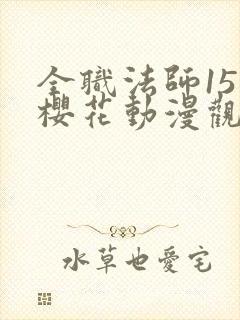 全職法師15
櫻花動漫觀
水草也愛宅